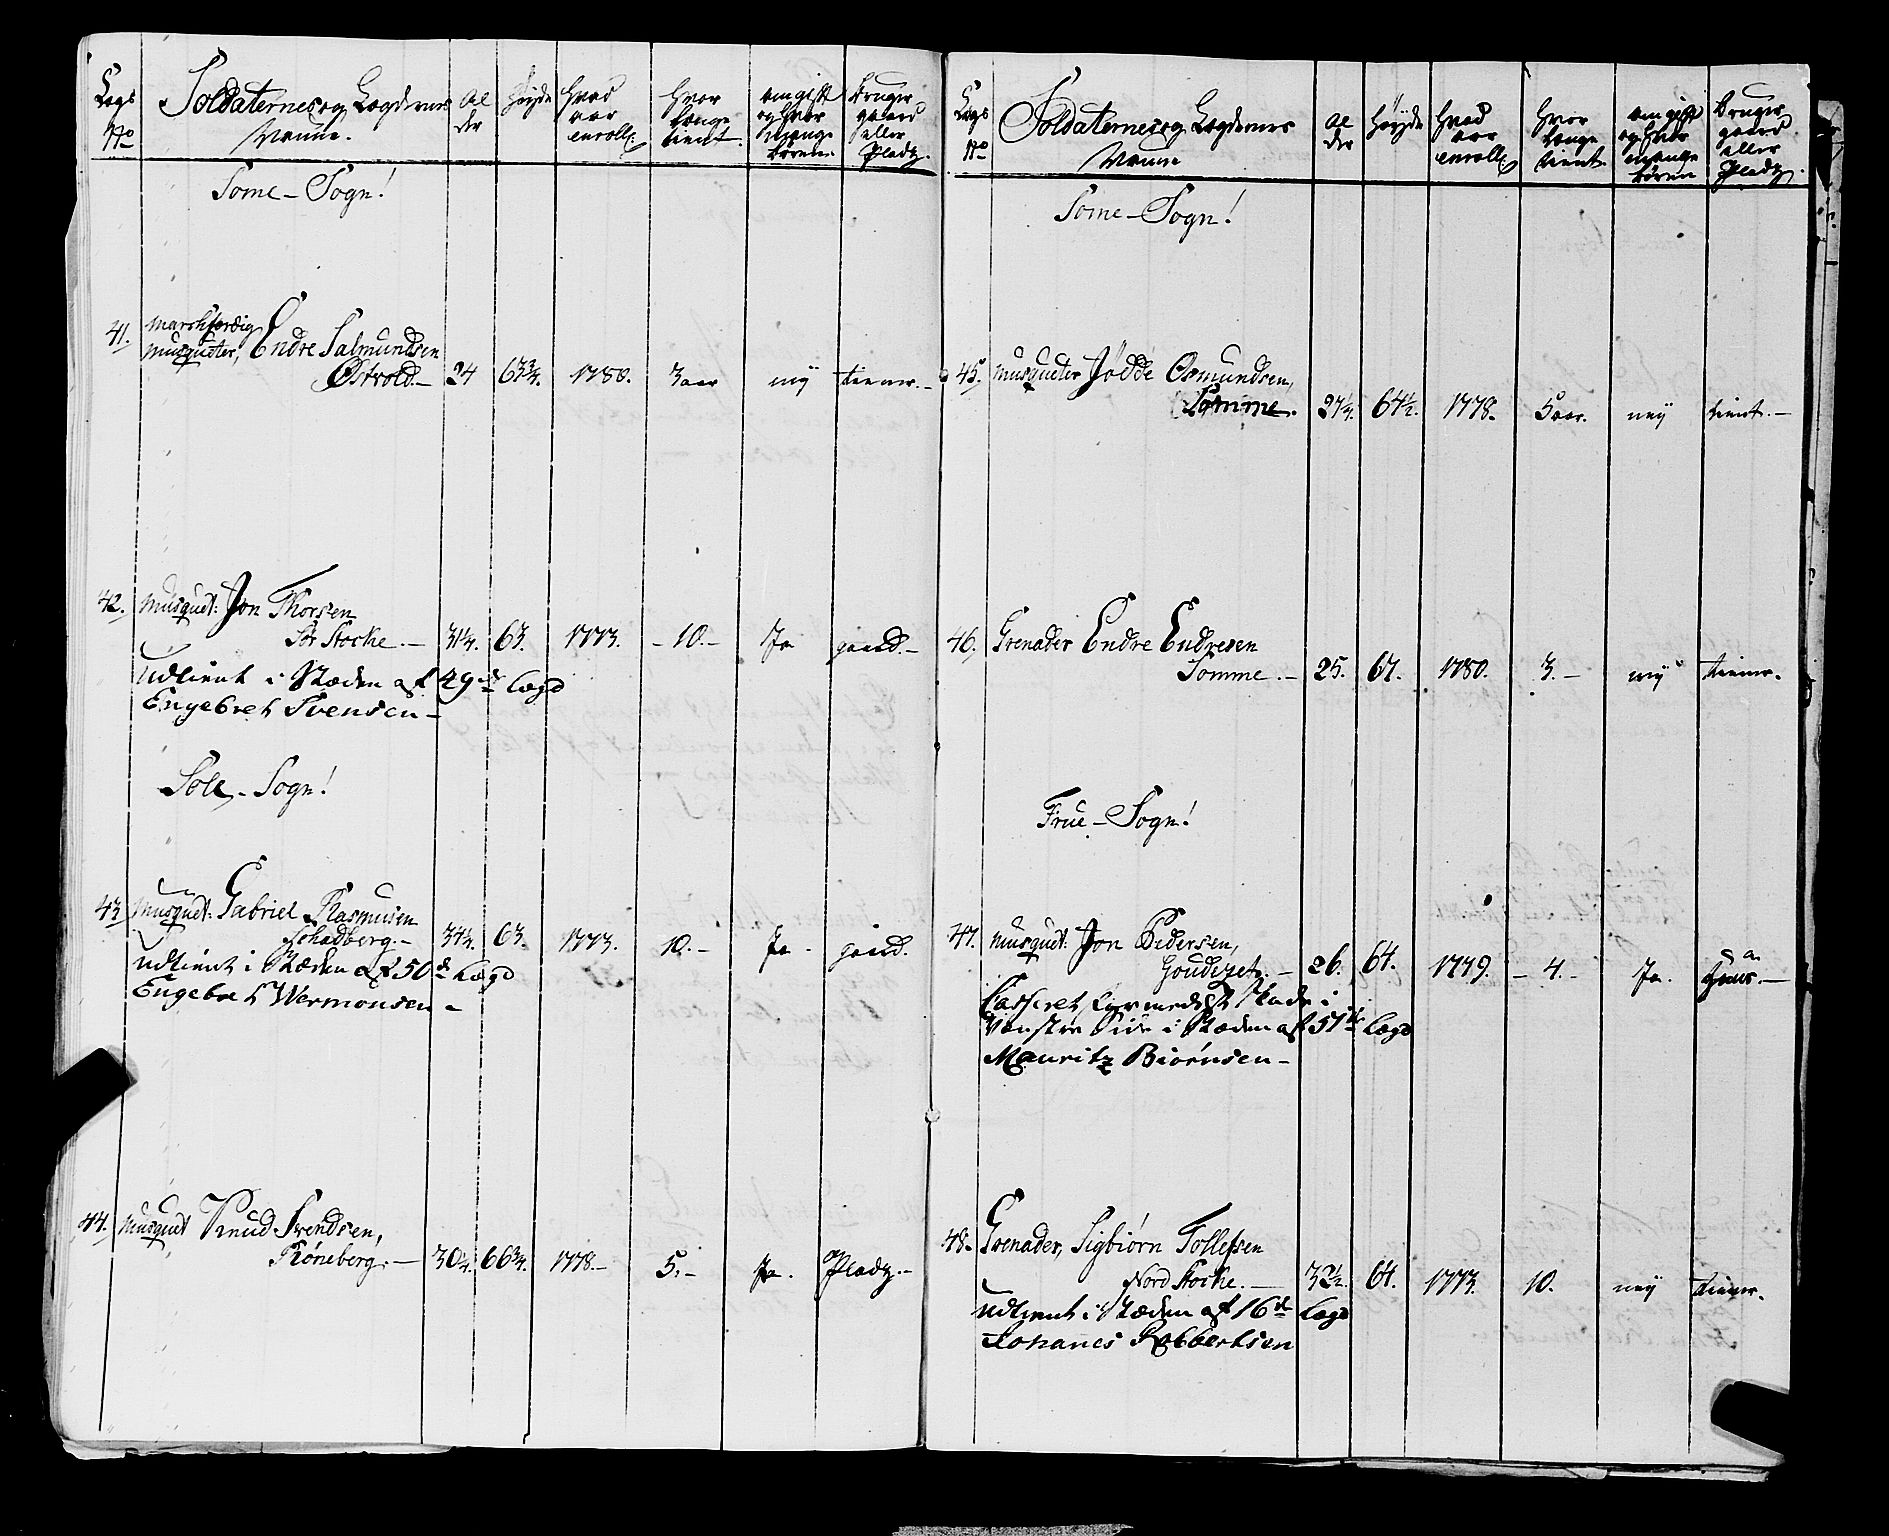 Legs No
Soldaternes og Legdernes Naune.
Al der
Høyde
hvad aar enroll:
hvor længe tient.
om gift og hvor mange børn
bruger gaard eller Pladz.
Some - Sogn!
41. Marchfærdig
Musqueter, Endre Salmundsen
Østvold. - 24 63¾. 1780. 3 aar ney tiener. -
42. Musquet: Jon Thorsen
Str Stocke. - 31¼. 63. 1773. - 10. - Ja gaard. -
udtient i Stæden af 49de Lægd
Engebret Svensen -
Sole - Sogn!
43. Musquet: Gabriel Rasmusen
Schadberg. - 34¼. 63. 1773. 10. - Ja - gaard.
udtient i Stæden af 50de Lægd
Engebret Wermonsen -
44. Musquet Knud Svendsen,
Røneberg. - 30¼. 66¾. 1778. - 5. - Ja. Pladz. -
Legs No
Soldaternes og Legdernes Naune
Al der
Høyde
hvad aar enroll:
hvor længe tient.
om gift og hvor mange børn
bruger gaard eller Pladz.
Some - Sogn!
45. Musqueter Jödde Osmundsen,
Somme. 27¼. 64½. 1778. 5 aar. ney tient. -
46. Grenader Endre Endresen
Somme. - 25. 67. 1780. 3. - ney tiener.
Frue - Sogn!
47. Musquet: Jon Pedersen,
- 26. 64. 1779. - 4. - Ja.
Casseret formedelst Skade i
Venstre Side i Stæden af 51de Lægd
Mauritz Biørnsen -
48. Grenader, Sigbiørn Tollefsen
Nord Stocke. - 32½. 64. 1773. 10. ney tiener.
udtient i Stæden af 16de Lægd
Johanes Robbertsen